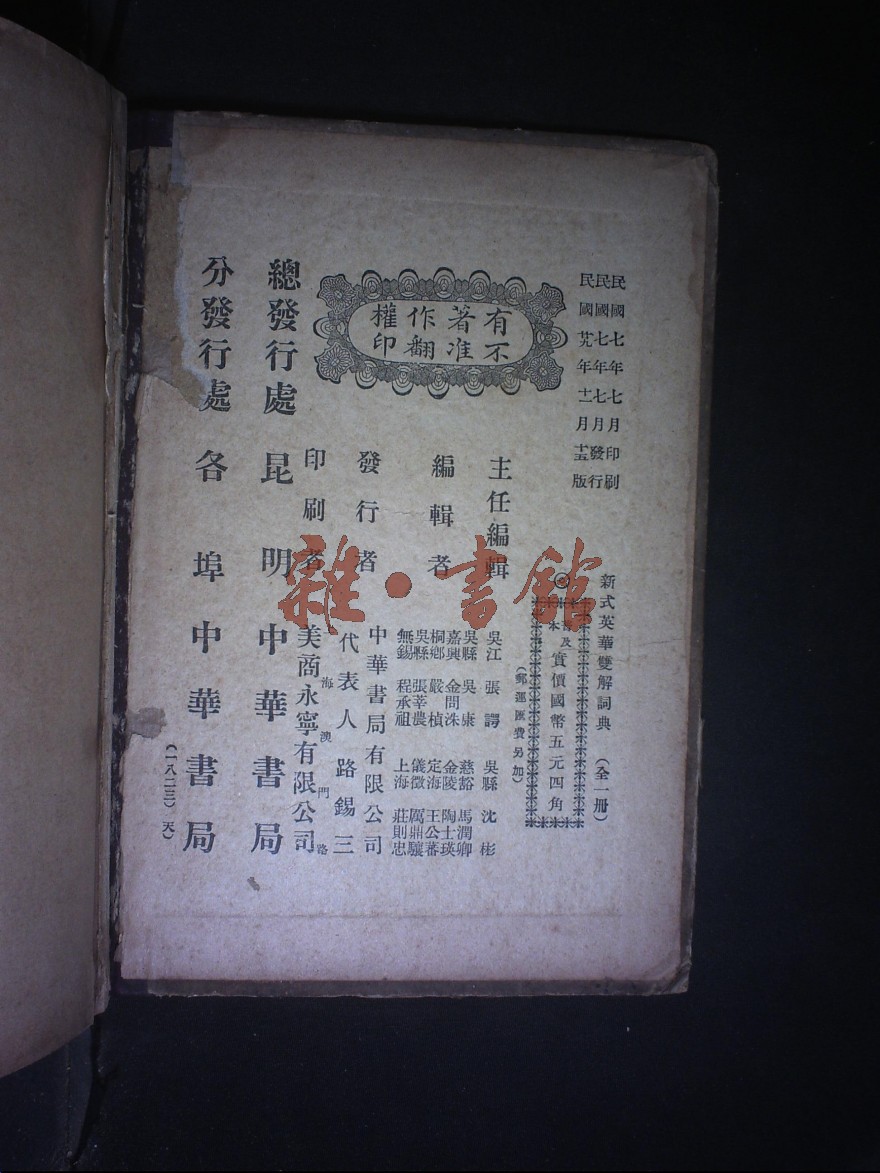 民國七年七月印刷
民國七年七月發行
民國廿九年十二月十五版
新式英華雙解詞典(全一冊)
實價國幣五元四角
(郵運匯費另加)
有著作權
不准翻印
主任編輯
吳江 張諤 吳縣 沈彬
編輯者
吳縣 吳康 慈谿 馬潤卿
嘉興 金問洙 金陵 陶士瑛
桐鄉 嚴楨 定海 王公蕃
吳縣 張莘農 儀徵 厲鼎驤
無錫 程承祖 上海 莊則忠
發行者
中華書局有限公司
代表人路錫三
印刷者
上海澳門路
美商永寧有限公司
總發行處 昆明 中華書局
分發行處 各埠 中華書局
(一八二三)(天)
雜·書館